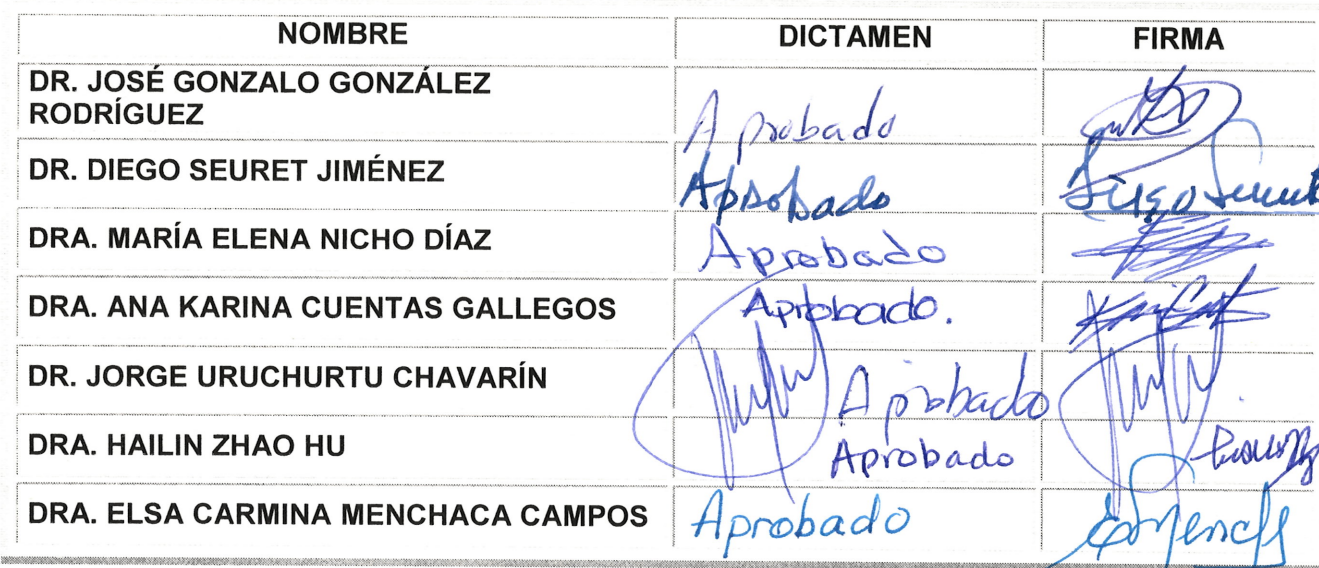 NOMBRE DICTAMEN FIRMA
DR. JOSÉ GONZALO GONZÁLEZ
RODRÍGUEZ Aprobado
DR. DIEGO SEURET JIMÉNEZ Aprobado Diego Seuret
DRA. MARÍA ELENA NICHO DÍAZ Aprobado
DRA. ANA KARINA CUENTAS GALLEGOS Aprobado.
DR. JORGE URUCHURTU CHAVARÍN Aprobado
DRA. HAILIN ZHAO HU Aprobado
DRA. ELSA CARMINA MENCHACA CAMPOS Aprobado